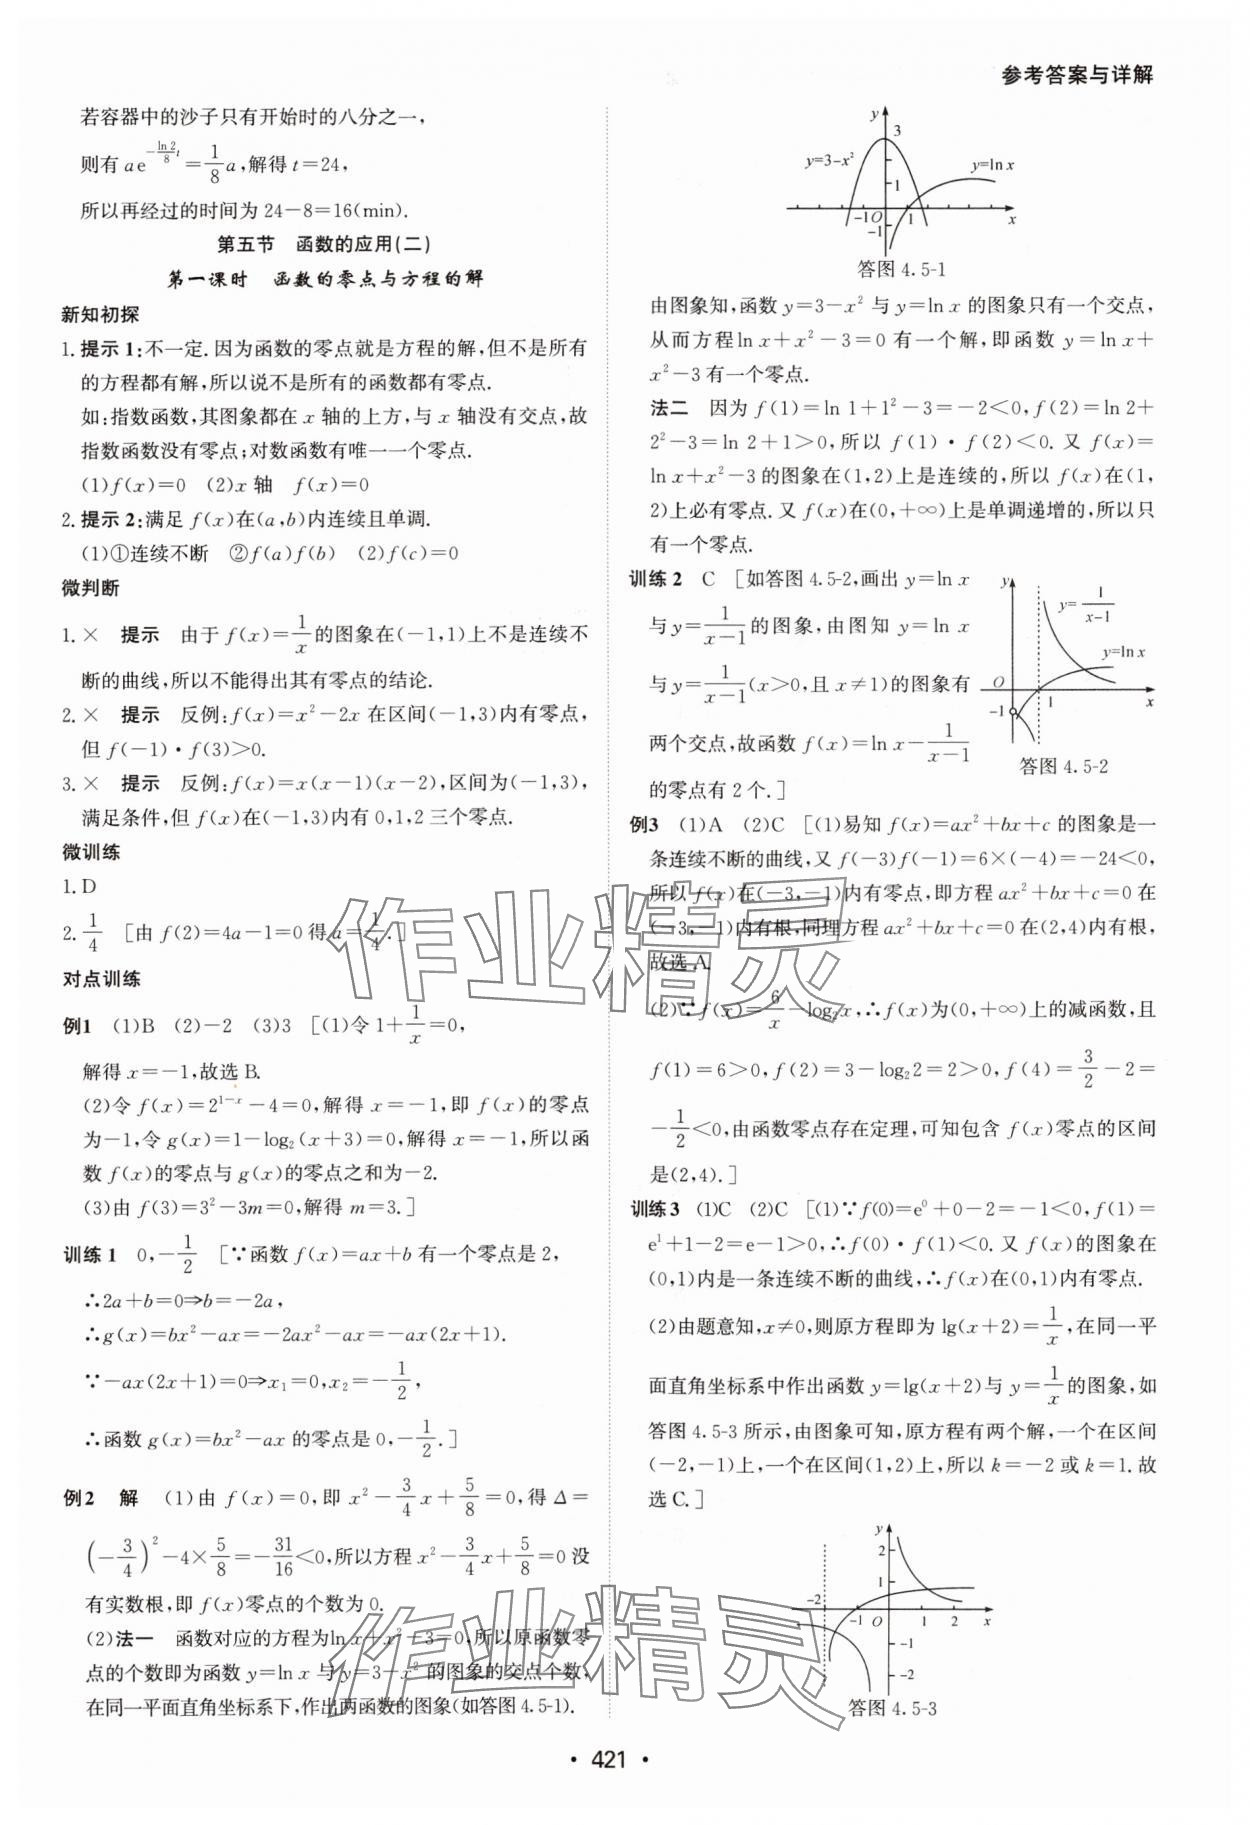 参考答案与详解
若容器中的沙子只有开始时的八分之一,
则有 ae^{-\frac{ln 2}{8}t}=\frac{1}{8}a,解得 t=24,
所以再经过的时间为 24-8=16(min).
第五节 函数的应用(二)
第一课时 函数的零点与方程的解
新知初探
1. 提示 1:不一定.因为函数的零点就是方程的解,但不是所有
的方程都有解,所以说不是所有的函数都有零点.
如:指数函数,其图象都在 x 轴的上方,与 x 轴没有交点,故
指数函数没有零点;对数函数有唯一一个零点.
(1)f(x)=0 (2)x 轴 f(x)=0
2. 提示 2:满足 f(x)在(a,b)内连续且单调.
(1)①连续不断 ②f(a)f(b) (2)f(c)=0
微判断
1. × 提示 由于 f(x)=\frac{1}{x}的图象在(-1,1)上不是连续不
断的曲线,所以不能得出其有零点的结论.
2. × 提示 反例:f(x)=x²-2x 在区间(-1,3)内有零点,
但 f(-1)·f(3)>0.
3. × 提示 反例:f(x)=x(x-1)(x-2),区间为(-1,3),
满足条件,但 f(x)在(-1,3)内有 0,1,2 三个零点.
微训练
1. D
2. \frac{1}{4} [由 f(2)=4a-1=0 得 a=\frac{1}{4}.]
对点训练
例1 (1)B (2)-2 (3)3 [(1)令 1+\frac{1}{x}=0,
解得 x=-1,故选 B.
(2)令 f(x)=2^{1-x}-4=0,解得 x=-1,即 f(x)的零点
为-1,令 g(x)=1-log₂(x+3)=0,解得 x=-1,所以函
数 f(x)的零点与 g(x)的零点之和为-2.
(3)由 f(3)=3²-3m=0,解得 m=3.]
训练 1 0,-\frac{1}{2} [∵函数 f(x)=ax+b 有一个零点是 2,
∴2a+b=0⇒b=-2a,
∴g(x)=bx²-ax=-2ax²-ax=-ax(2x+1).
∵-ax(2x+1)=0⇒x₁=0,x₂=-\frac{1}{2},
∴函数 g(x)=bx²-ax 的零点是 0,-\frac{1}{2}.]
例2 解 (1)由 f(x)=0,即 x²-\frac{3}{4}x+\frac{5}{8}=0,得 Δ=
(-\frac{3}{4})²-4×\frac{5}{8}=-\frac{31}{16}<0,所以方程 x²-\frac{3}{4}x+\frac{5}{8}=0 没
有实数根,即 f(x)零点的个数为 0.
(2)法一 函数对应的方程为ln x+x²-3=0,所以原函数零
点的个数即为函数 y=ln x 与 y=3-x² 的图象的交点个数,
在同一平面直角坐标系下,作出两函数的图象(如答图 4.5-1).
y
3
y=3-x²
1
y=ln x
-1 O 1 x
-1
答图 4.5-1
由图象知,函数 y=3-x² 与 y=ln x 的图象只有一个交点,
从而方程ln x+x²-3=0 有一个解,即函数 y=ln x+
x²-3 有一个零点.
法二 因为 f(1)=ln 1+1²-3=-2<0,f(2)=ln 2+
2²-3=ln 2+1>0,所以 f(1)·f(2)<0.又 f(x)=
ln x+x²-3 的图象在(1,2)上是连续的,所以 f(x)在(1,
2)上必有零点.又 f(x)在(0,+∞)上是单调递增的,所以只
有一个零点.
训练 2 C [如答图 4.5-2,画出 y=ln x
与 y=\frac{1}{x-1}的图象,由图知 y=ln x
与 y=\frac{1}{x-1}(x>0,且 x≠1)的图象有
两个交点,故函数 f(x)=ln x-\frac{1}{x-1}
的零点有 2 个.]
y
y=\frac{1}{x-1}
y=ln x
O 1 x
-1
答图 4.5-2
例3 (1)A (2)C [(1)易知 f(x)=ax²+bx+c 的图象是一
条连续不断的曲线,又 f(-3)f(-1)=6×(-4)=-24<0,
所以 f(x)在(-3,-1)内有零点,即方程 ax²+bx+c=0 在
(-3,-1)内有根,同理方程 ax²+bx+c=0 在(2,4)内有根,
故选 A.
(2)∵f(x)=\frac{6}{x}-log₂x,∴f(x)为(0,+∞)上的减函数,且
f(1)=6>0,f(2)=3-log₂2=2>0,f(4)=\frac{3}{2}-2=
-\frac{1}{2}<0,由函数零点存在定理,可知包含 f(x)零点的区间
是(2,4).]
训练 3 (1)C (2)C [(1)∵f(0)=e⁰+0-2=-1<0,f(1)=
e¹+1-2=e-1>0,∴f(0)·f(1)<0.又 f(x)的图象在
(0,1)内是一条连续不断的曲线,∴f(x)在(0,1)内有零点.
(2)由题意知,x≠0,则原方程即为 lg(x+2)=\frac{1}{x},在同一平
面直角坐标系中作出函数 y=lg(x+2)与 y=\frac{1}{x}的图象,如
答图 4.5-3 所示,由图象可知,原方程有两个解,一个在区间
(-2,-1)上,一个在区间(1,2)上,所以 k=-2 或 k=1.故
选 C.]
y
2
1
-2 -1 O 1 2 x
-1
-2
答图 4.5-3
作业精灵
作业精灵
·421·